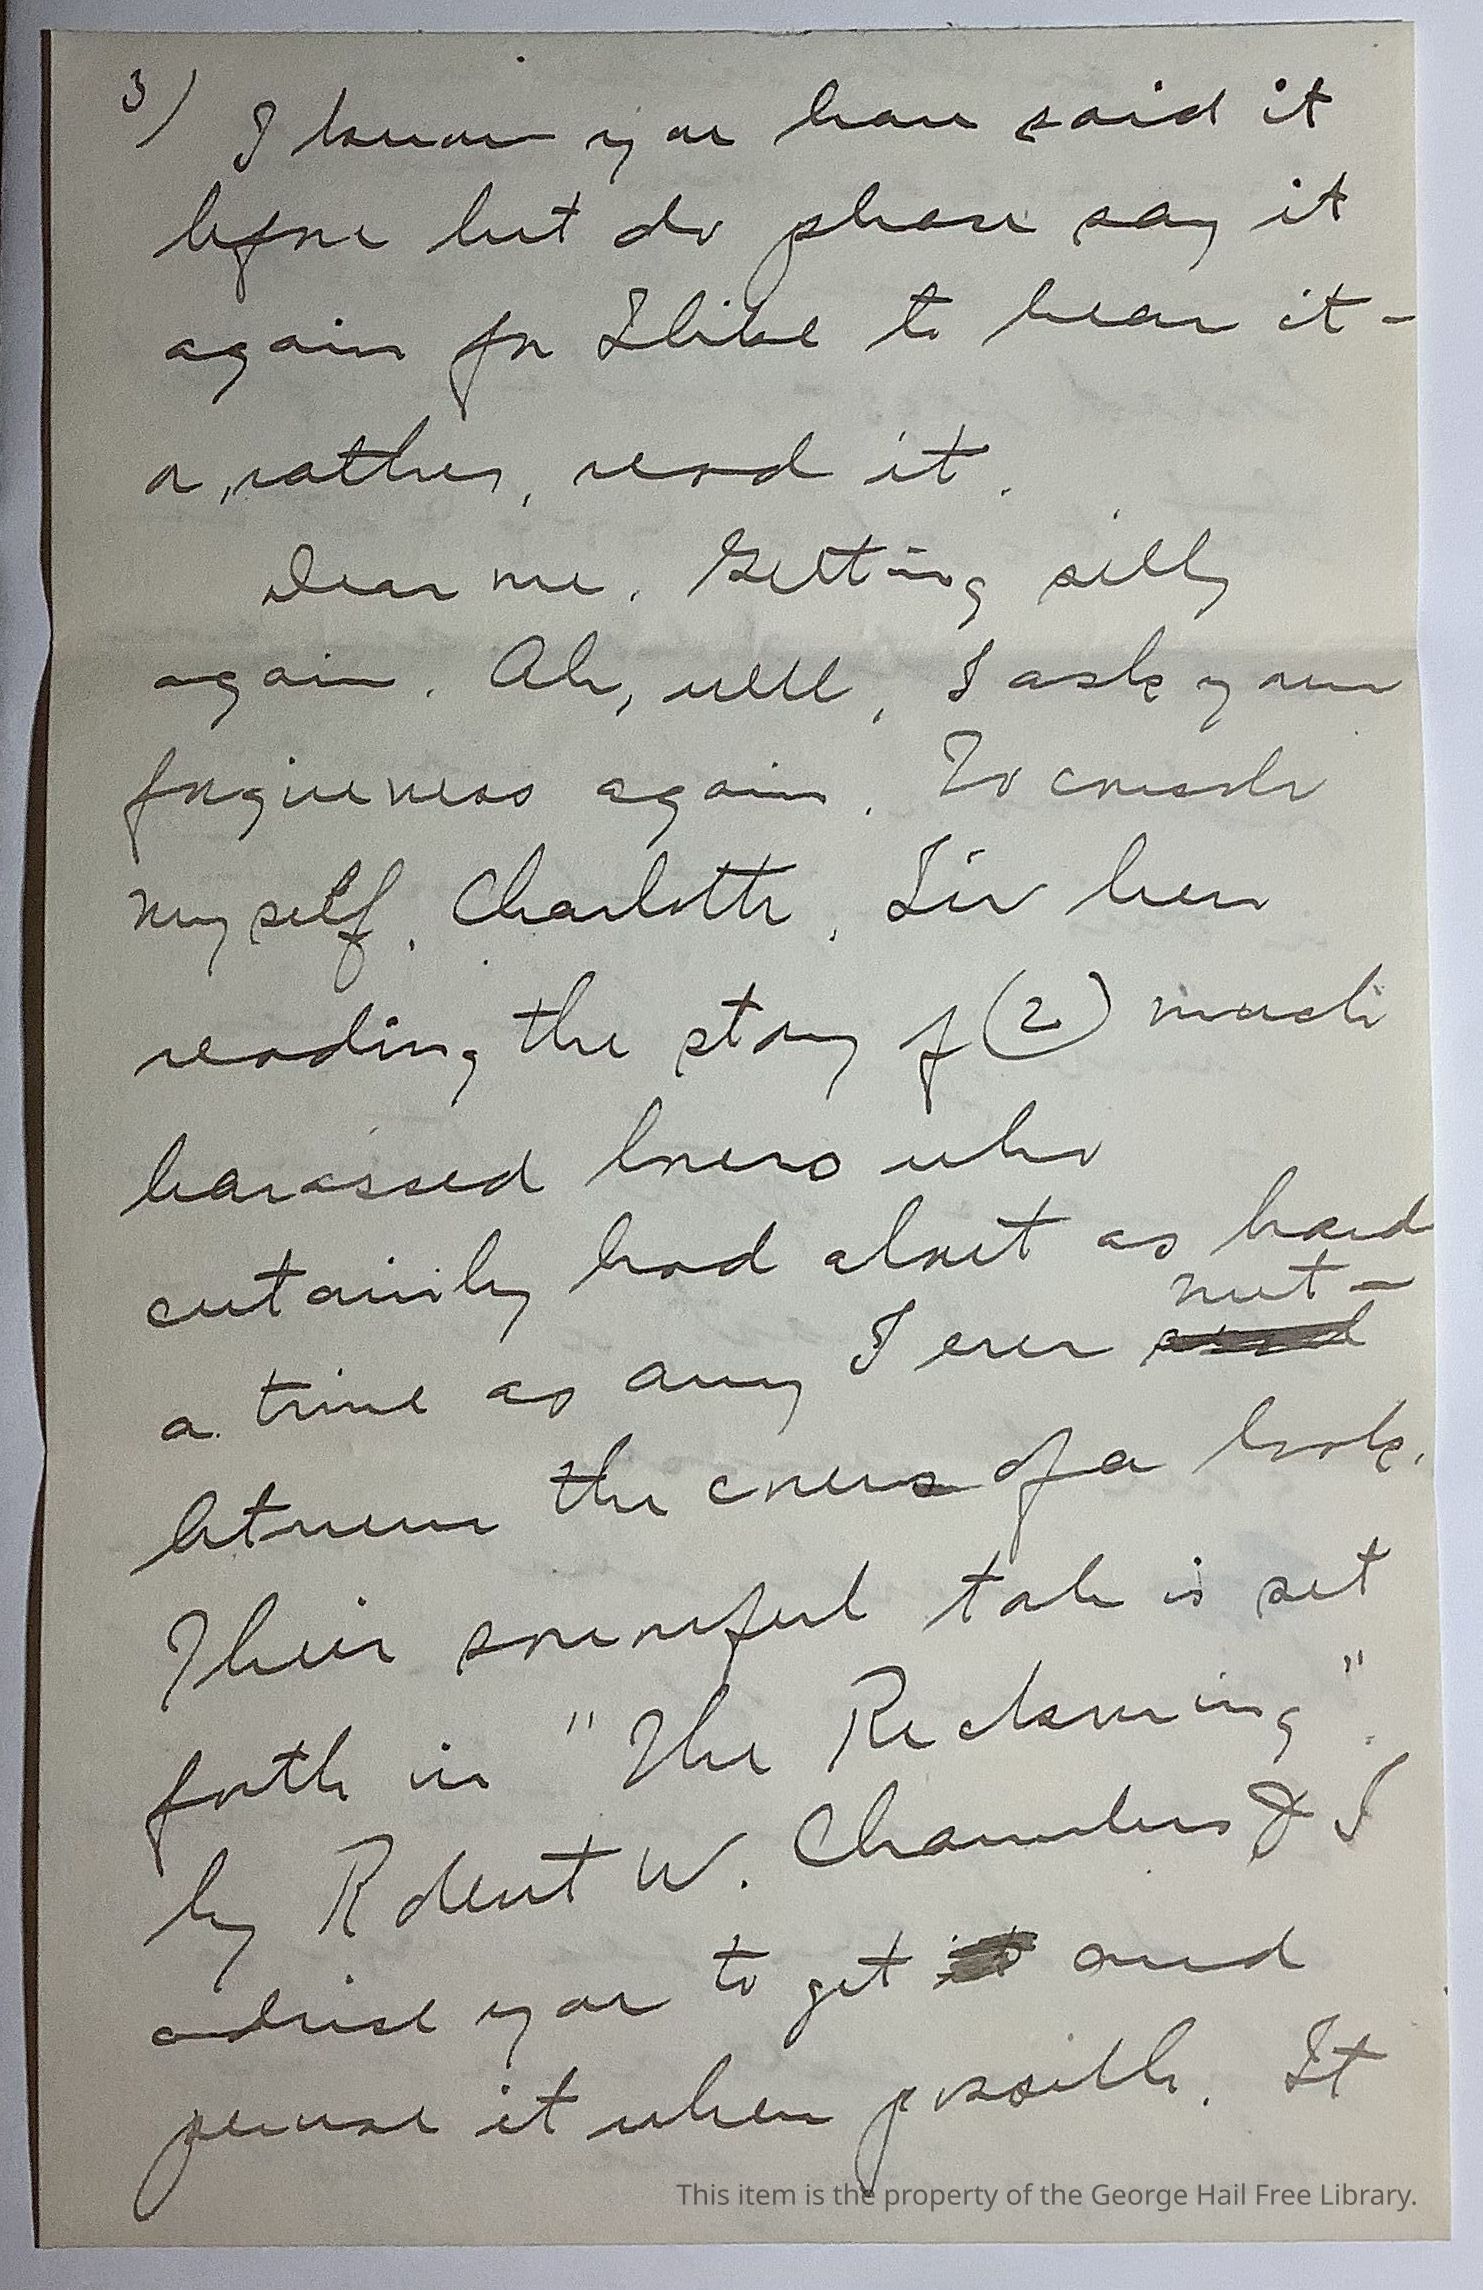 3) I know you have said it
before but do please say it
again for I like to hear it -
or, rather, read it.
Dear me. Getting silly
again. Ah, well, I ask your
forgiveness again. To console
myself, Charlotte, I've been
reading the story of (2) much
harassed lovers who
certainly had almost as hard
met -
a time as any I ever
between the covers of a book.
Their sorrowful tale is set
forth in "The Reckoning"
by Robert W. Chambers & I
advise you to get it and
peruse it when possible. It
This item is the property of the George Hail Free Library.